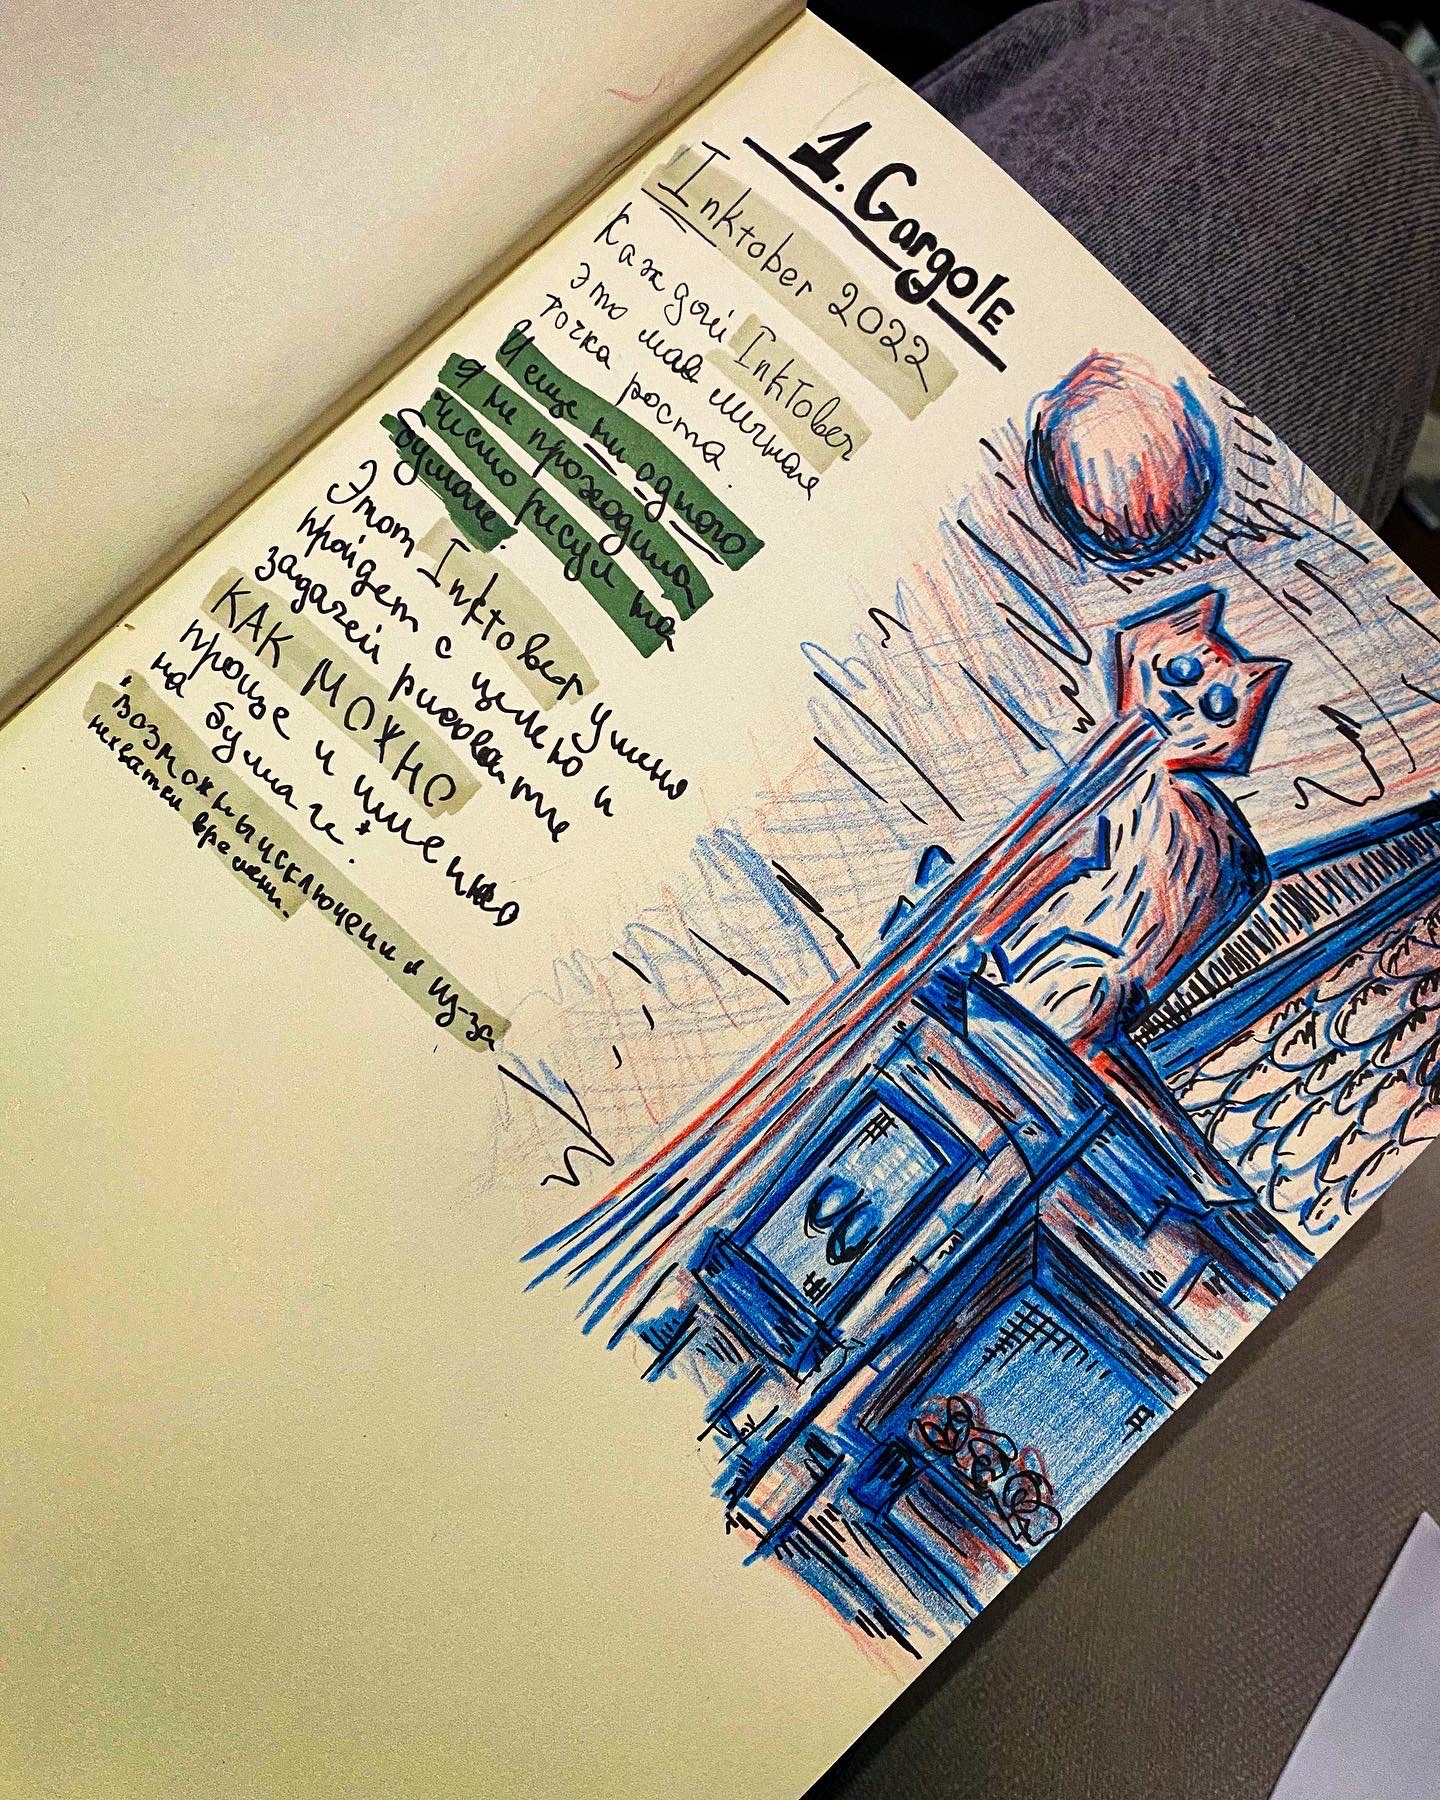 1. Gargole
Inktober 2022
Каждый InkTober
это моя личная
точка роста.
И еще ни одного
я не проходила
чисто рисуя на
бумаге.
Этот Inktober у меня
пройдет с целью и
задачей рисовать
КАК МОЖНО
проще и именно
на бумаге*.
*возможны исключения из-за
нехватки времени.